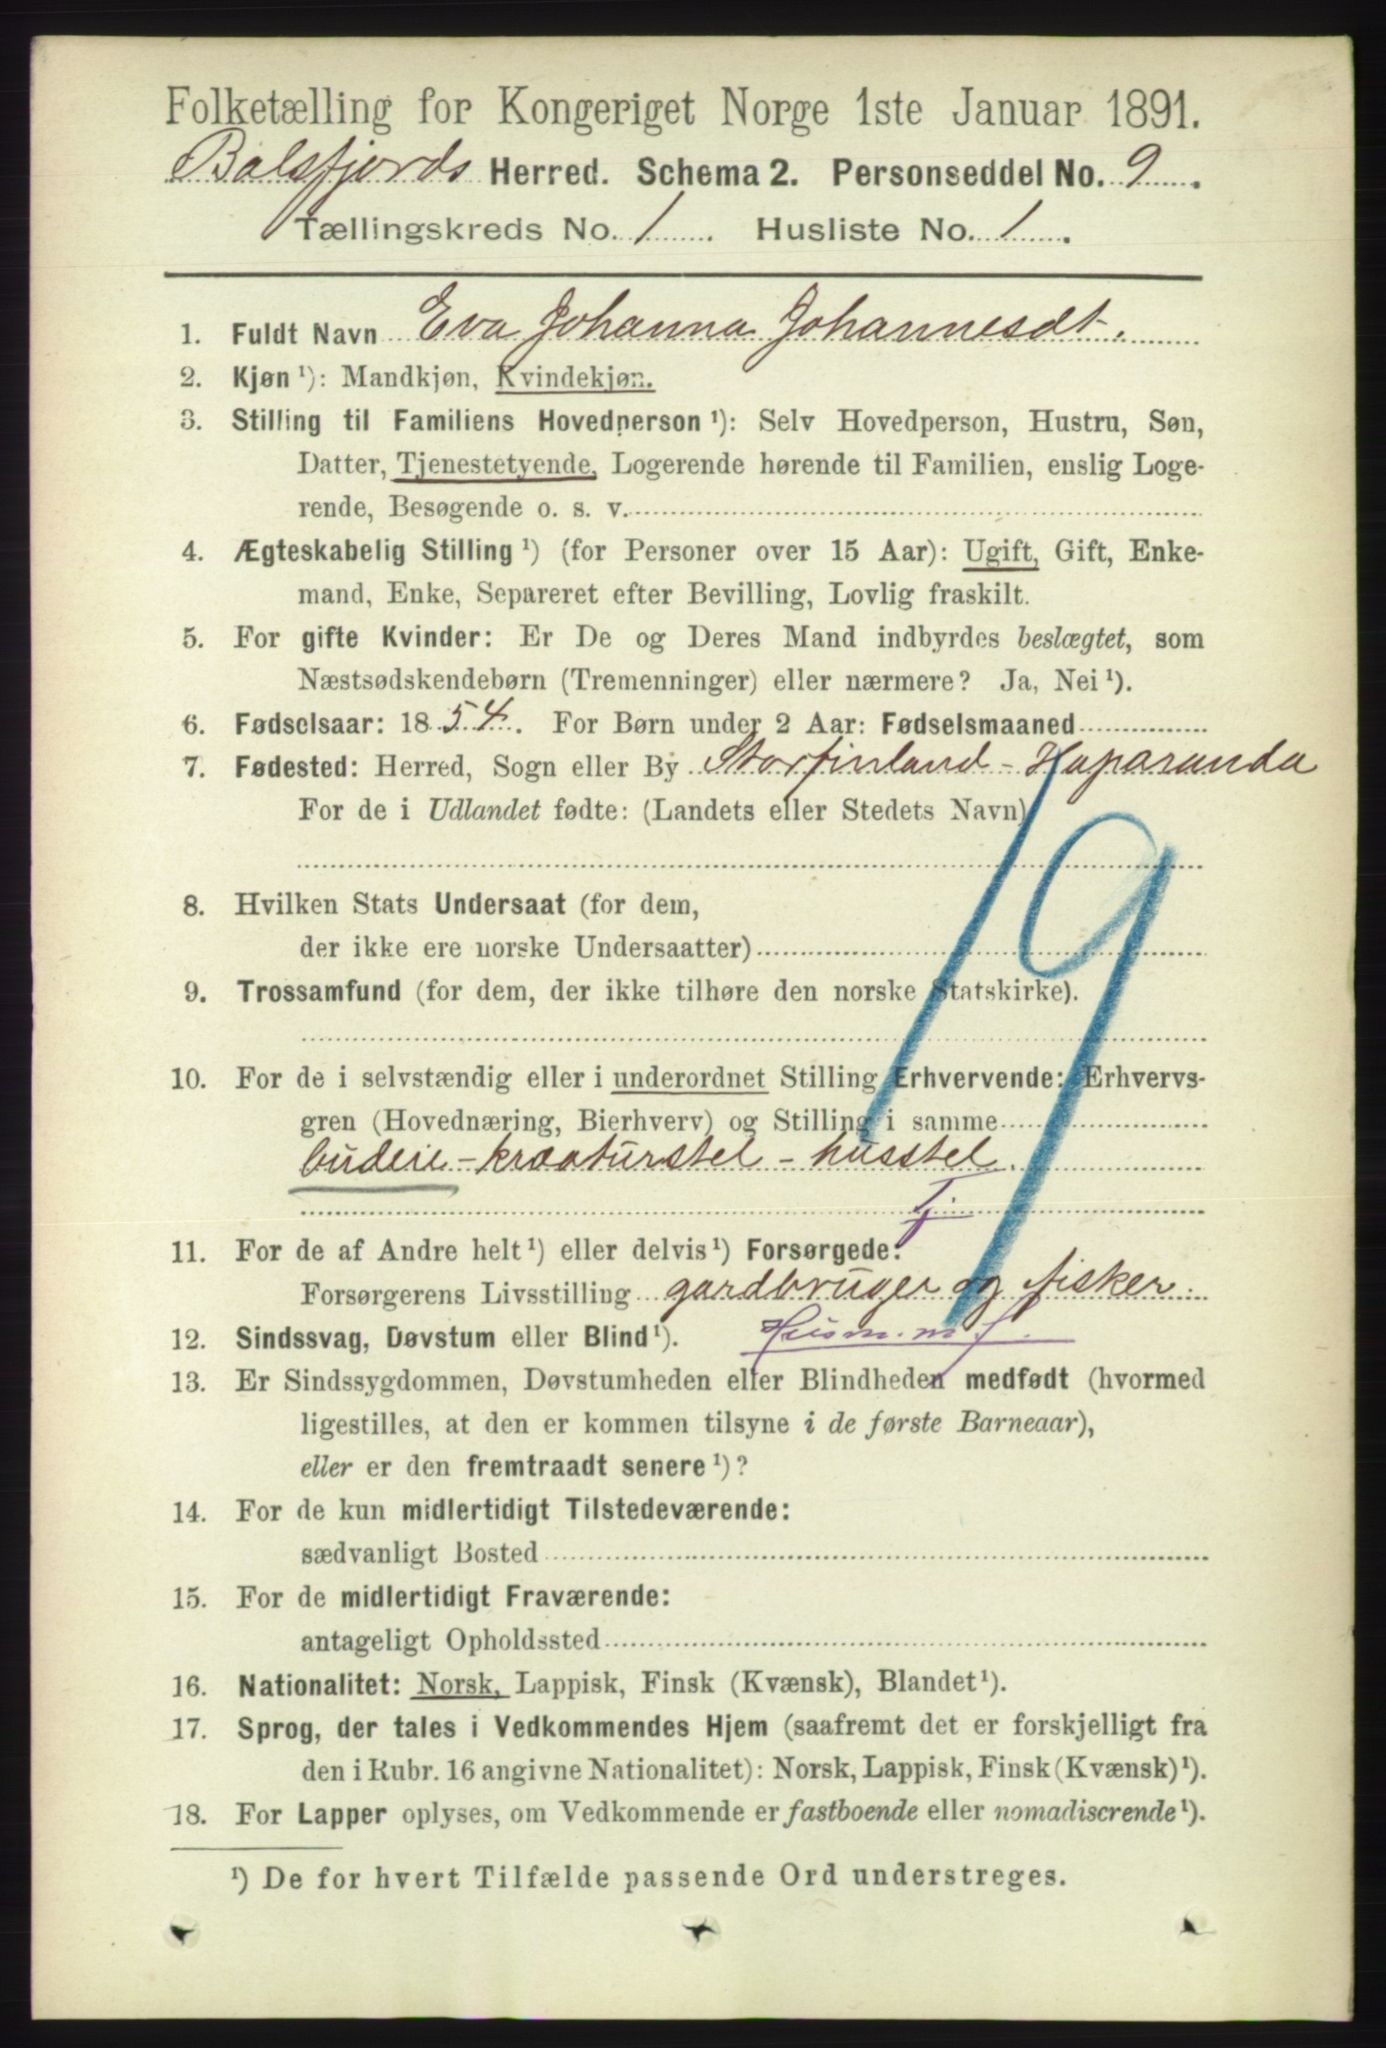 Folketælling for Kongeriget Norge 1ste Januar 1891.
Balsfjords Herred. Schema 2. Personseddel No. 9.
Tællingskreds No. 1. Husliste No. 1.
1. Fuldt Navn Eva Johanna Johannesdt.
2. Kjøn ¹): Mandkjøn, Kvindekjøn.
3. Stilling til Familiens Hovedperson ¹): Selv Hovedperson, Hustru, Søn,
Datter, Tjenestetyende, Logerende hørende til Familien, enslig Loge-
rende, Besøgende o. s. v.
4. Ægteskabelig Stilling ¹) (for Personer over 15 Aar): Ugift, Gift, Enke-
mand, Enke, Separeret efter Bevilling, Lovlig fraskilt.
5. For gifte Kvinder: Er De og Deres Mand indbyrdes beslægtet, som
Næstsødskendebørn (Tremenninger) eller nærmere? Ja, Nei ¹).
6. Fødselsaar: 1854. For Børn under 2 Aar: Fødselsmaaned
7. Fødested: Herred, Sogn eller By Storfinland - Haparanda
For de i Udlandet fødte: (Landets eller Stedets Navn)
19
8. Hvilken Stats Undersaat (for dem,
der ikke ere norske Undersaatter)
9. Trossamfund (for dem, der ikke tilhøre den norske Statskirke).
10. For de i selvstændig eller i underordnet Stilling Erhvervende: Erhvervs-
gren (Hovednæring, Bierhverv) og Stilling i samme
budeie - kreaturstel - husstel.
Tj.
11. For de af Andre helt ¹) eller delvis ¹) Forsørgede:
Forsørgerens Livsstilling gardbruger og fisker.
12. Sindssvag, Døvstum eller Blind ¹). Husm. m. f.
13. Er Sindssygdommen, Døvstumheden eller Blindheden medfødt (hvormed
ligestilles, at den er kommen tilsyne i de første Barneaar),
eller er den fremtraadt senere ¹)?
14. For de kun midlertidigt Tilstedeværende:
sædvanligt Bosted
15. For de midlertidigt Fraværende:
antageligt Opholdssted
16. Nationalitet: Norsk, Lappisk, Finsk (Kvænsk), Blandet ¹).
17. Sprog, der tales i Vedkommendes Hjem (saafremt det er forskjelligt fra
den i Rubr. 16 angivne Nationalitet): Norsk, Lappisk, Finsk (Kvænsk) ¹).
18. For Lapper oplyses, om Vedkommende er fastboende eller nomadiserende ¹).
¹) De for hvert Tilfælde passende Ord understreges.